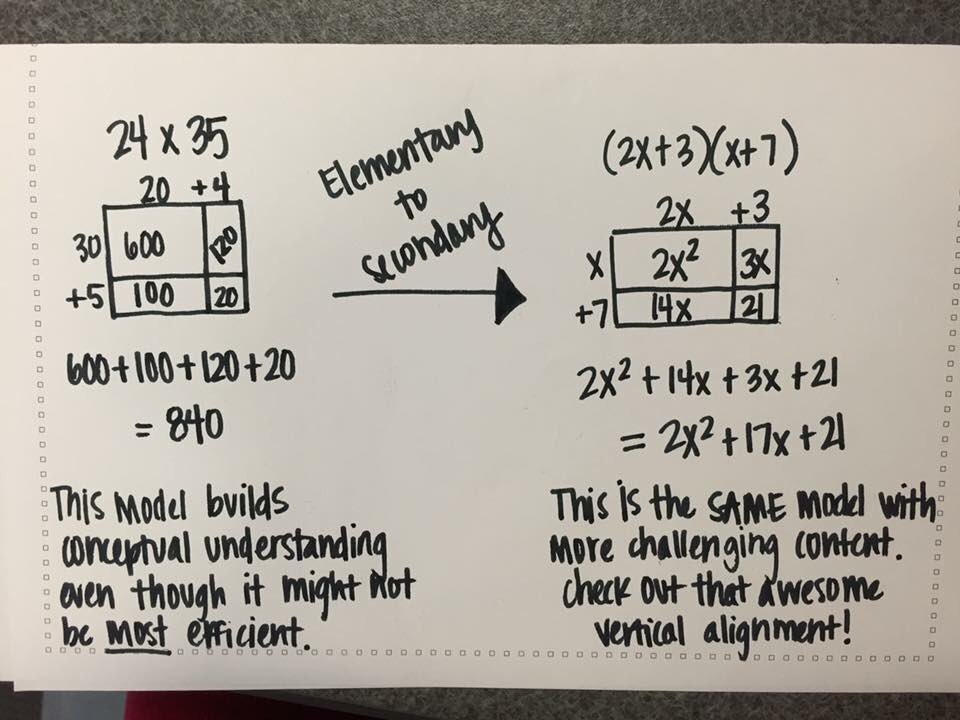 24 x 35
20 +4
30 600 120
+5 100 20
600+100+120+20
= 840
This Model builds
conceptual understanding
even though it might not
be most efficient.
Elementary
to
secondary
(2x+3)(x+7)
2x +3
x 2x² 3x
+7 14x 21
2x² + 14x + 3x + 21
= 2x² + 17x + 21
This is the SAME model with
more challenging content.
check out that awesome
vertical alignment!